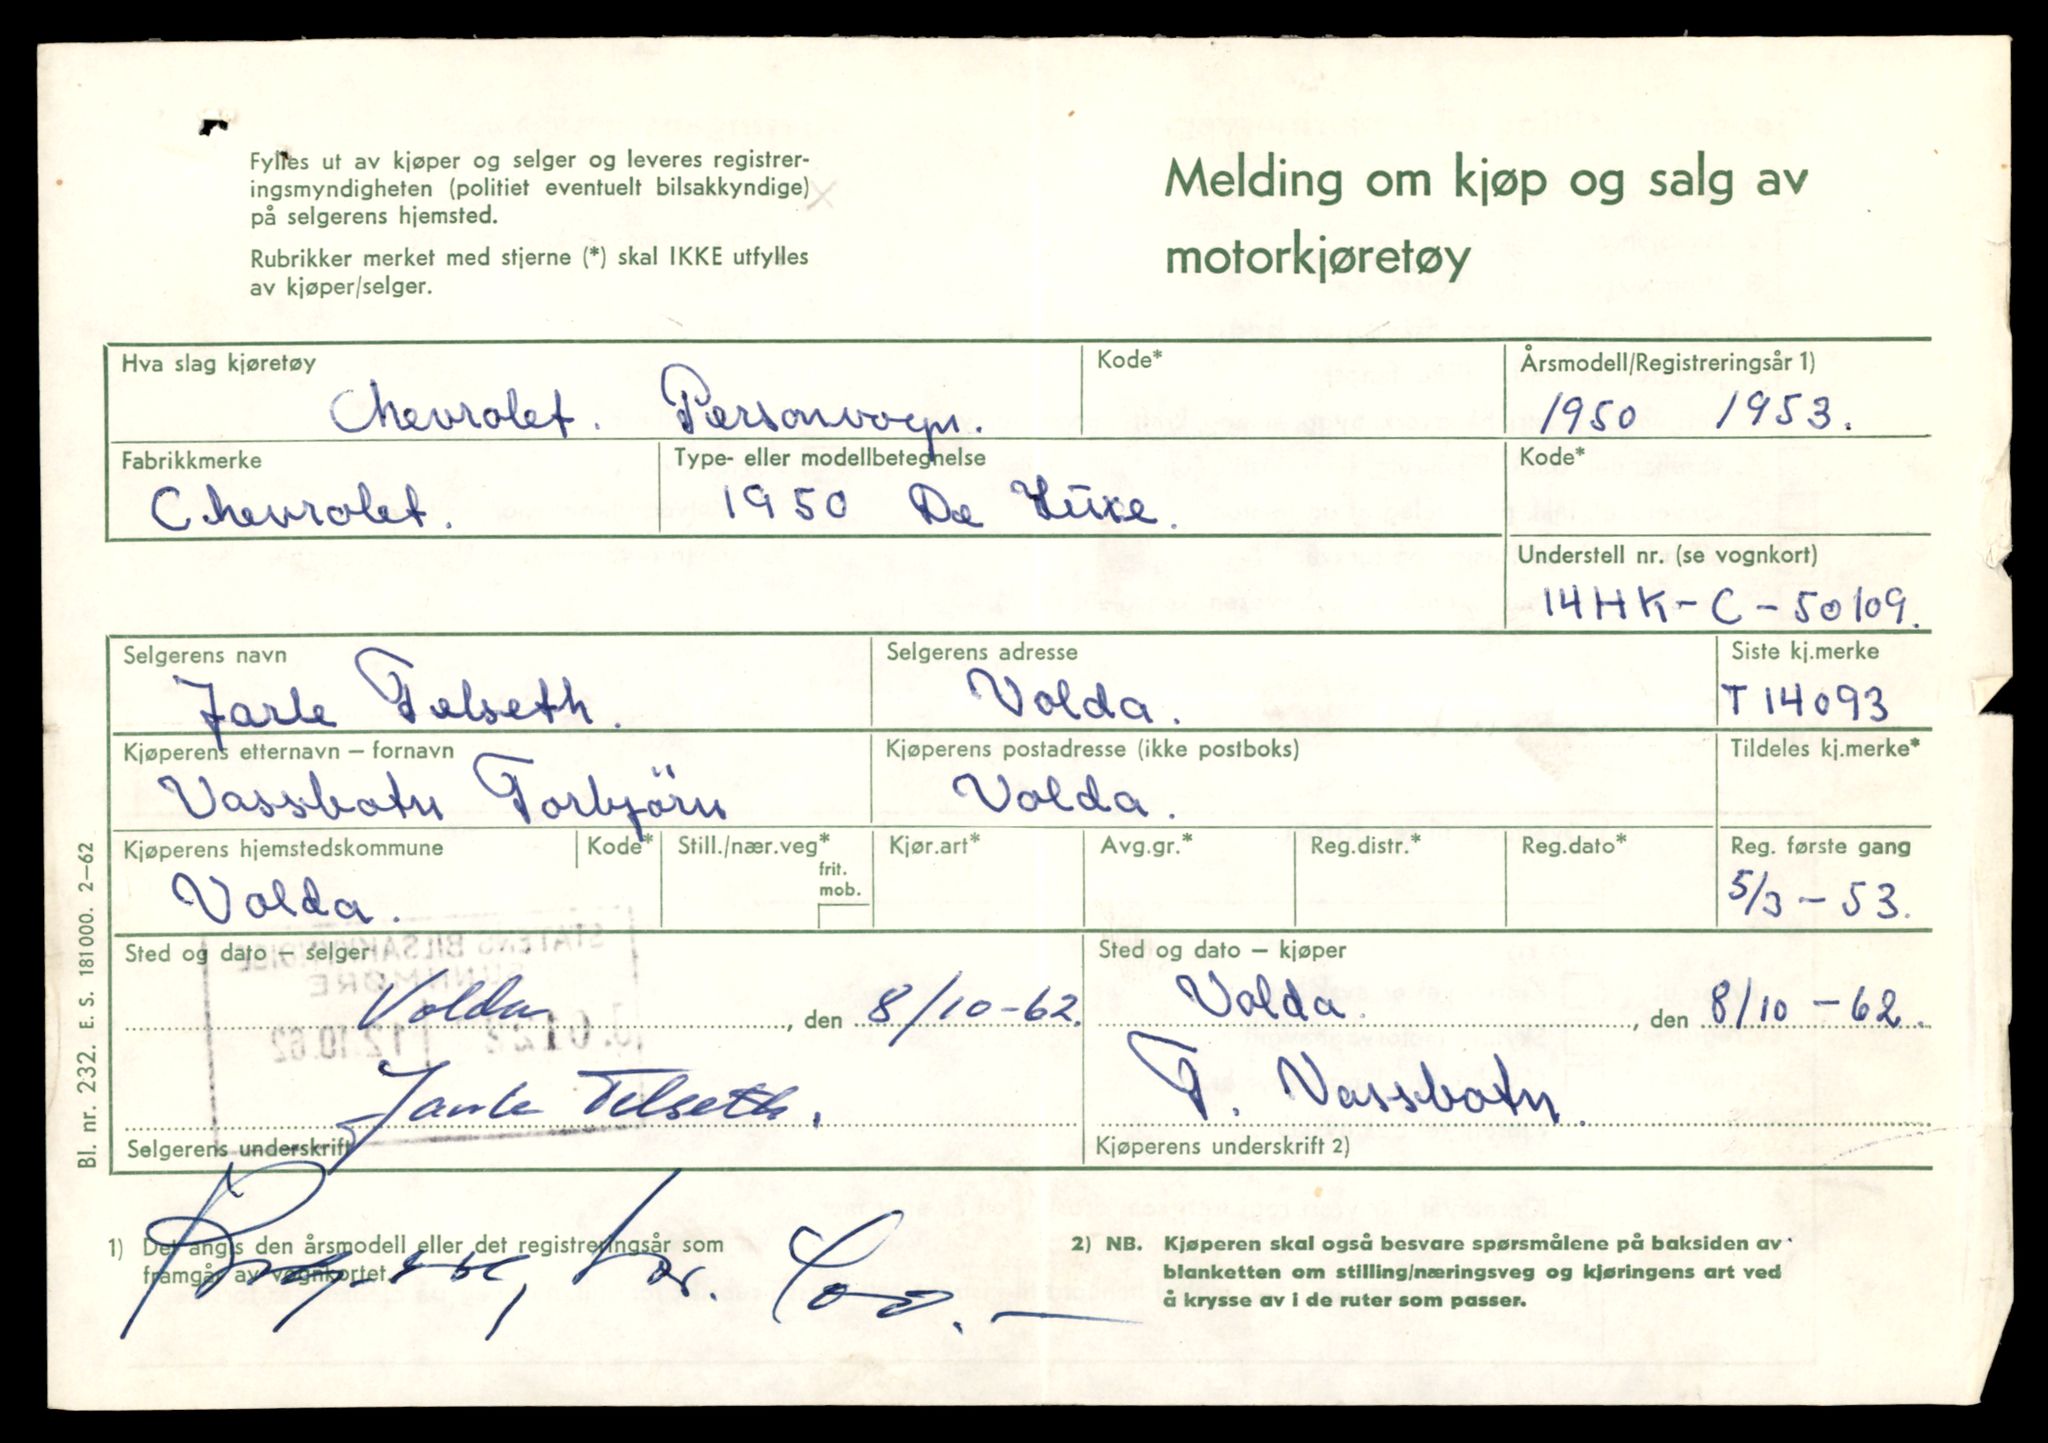 Fylles ut av kjøper og selger og leveres registrer-
ingsmyndigheten (politiet eventuelt bilsakkyndige)
på selgerens hjemsted.
Rubrikker merket med stjerne (*) skal IKKE utfylles
av kjøper/selger.
Melding om kjøp og salg av
motorkjøretøy
Hva slag kjøretøy
Kode*
Årsmodell/Registreringsår 1)
Chevrolet. Personvogn.
1950 1953.
Fabrikkmerke
Type- eller modellbetegnelse
Kode*
Chevrolet.
1950 De Luxe.
Understell nr. (se vognkort)
14HK-C-50109.
Selgerens navn
Selgerens adresse
Siste kj.merke
Jarle Telseth.
Volda.
T 14093
Kjøperens etternavn – fornavn
Kjøperens postadresse (ikke postboks)
Tildeles kj.merke*
Vassbotn Torbjörn
Volda.
Kjøperens hjemstedskommune
Kode*
Still./nær.veg*
frit.
mob.
Kjør.art*
Avg.gr.*
Reg.distr.*
Reg.dato*
Reg. første gang
Volda.
5/3 – 53.
STATENS BILSAKKYNDIGE
SUNNMØRE
12.10.62
Sted og dato – selger
Sted og dato – kjøper
Volda, den 8/10-62.
Volda. , den 8/10 – 62.
Jarle Telseth.
T. Vassbotn.
Selgerens underskrift
Kjøperens underskrift 2)
1) Det angis den årsmodell eller det registreringsår som
framgår av vognkortet.
2) NB. Kjøperen skal også besvare spørsmålene på baksiden av
blanketten om stilling/næringsveg og kjøringens art ved
å krysse av i de ruter som passer.
Bl. nr. 232. E. S. 181000. 2–62